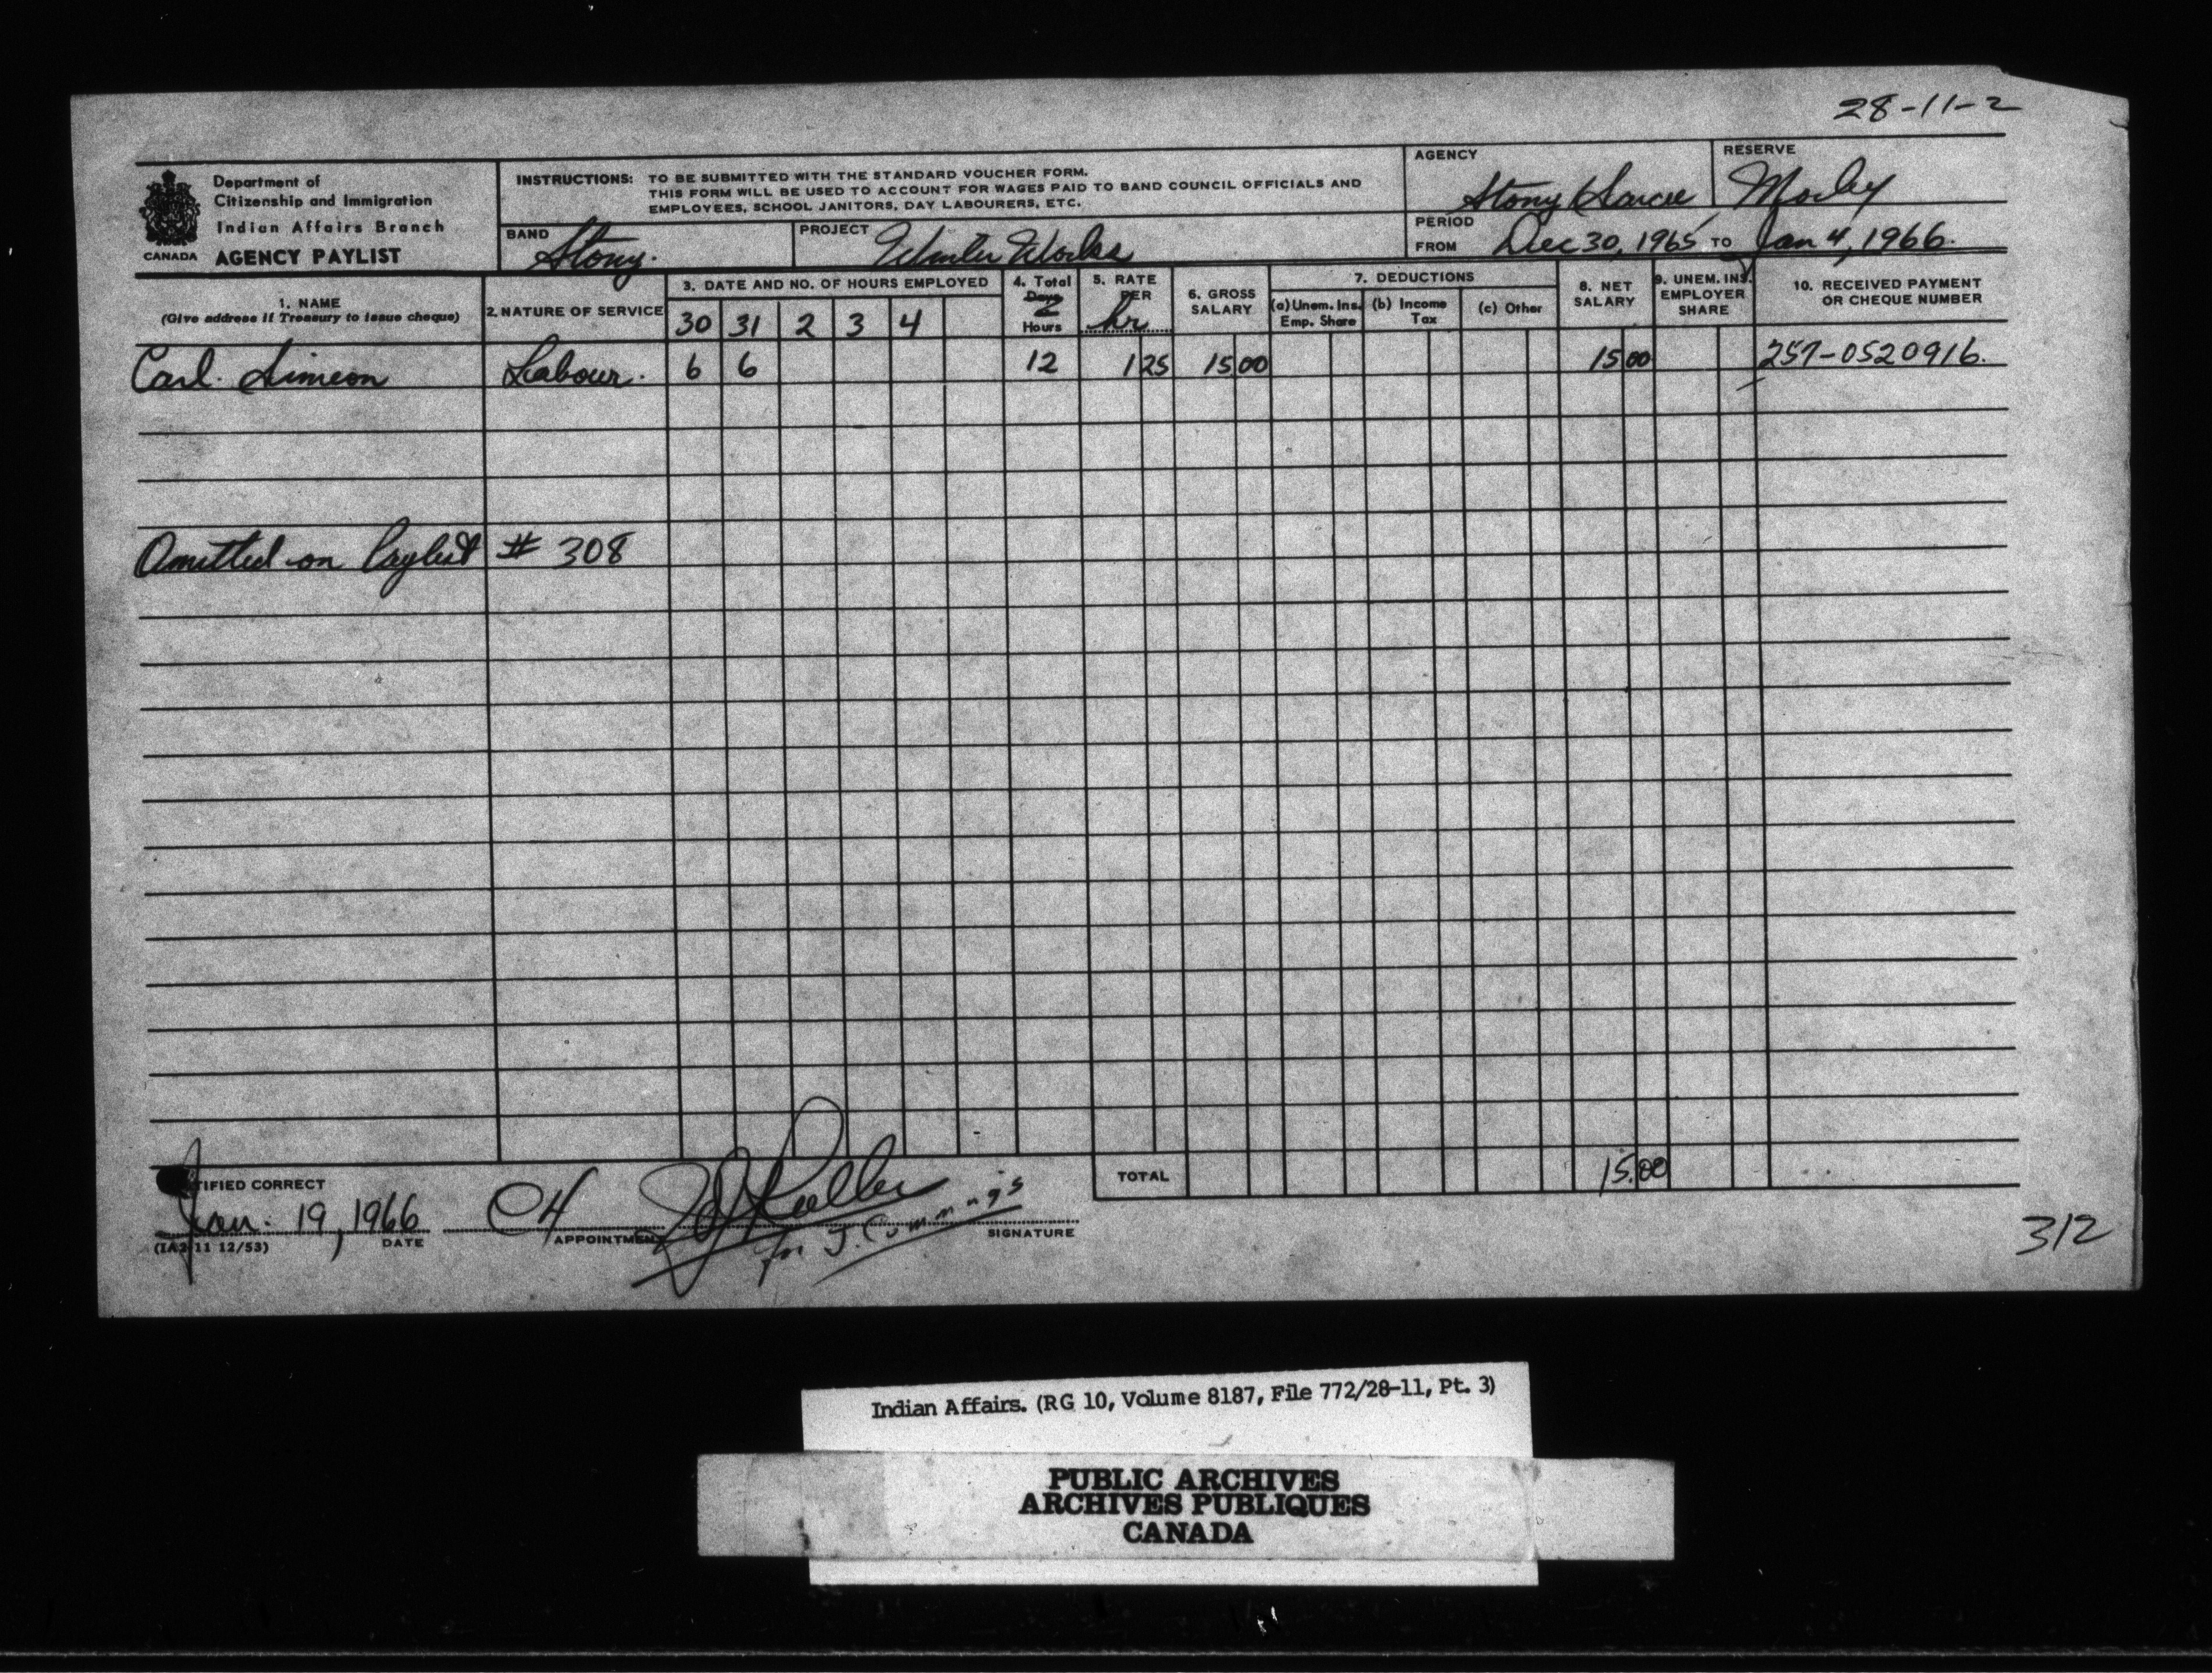 28-11-2
Department of
Citizenship and Immigration
Indian Affairs Branch
CANADA AGENCY PAYLIST
INSTRUCTIONS: TO BE SUBMITTED WITH THE STANDARD VOUCHER FORM.
THIS FORM WILL BE USED TO ACCOUNT FOR WAGES PAID TO BAND COUNCIL OFFICIALS AND
EMPLOYEES, SCHOOL JANITORS, DAY LABOURERS, ETC.
BAND Stony. PROJECT Winter Works
AGENCY Stony Sarcee RESERVE Morley
PERIOD
FROM Dec 30, 1965 TO Jan 4, 1966.
1. NAME
(Give address if Treasury to issue cheque)
2. NATURE OF SERVICE
3. DATE AND NO. OF HOURS EMPLOYED
30 31 2 3 4
4. Total
Days
Hours
5. RATE
PER
hr
6. GROSS
SALARY
7. DEDUCTIONS
(a) Unem. Ins.
Emp. Share
(b) Income
Tax
(c) Other
8. NET
SALARY
9. UNEM. INS.
EMPLOYER
SHARE
10. RECEIVED PAYMENT
OR CHEQUE NUMBER
Carl. Simeon Labour. 6 6 12 1 25 15 00 15 00 257-0520916.
Omitted on Paylist # 308
TOTAL 15.00
TIFIED CORRECT
Jan. 19, 1966 CH
for J. Cummings
(IA2-11 12/53) DATE APPOINTMEN SIGNATURE
312
Indian Affairs. (RG 10, Volume 8187, File 772/28-11, Pt. 3)
PUBLIC ARCHIVES
ARCHIVES PUBLIQUES
CANADA